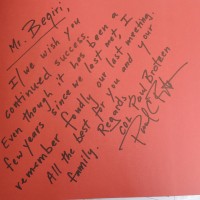 Mr. Beqiri,
I/we wish you
continued success.
Even though it has been a
few years since we last met I
remember fondly our last meeting.
All the best for you and your
family. Regards,